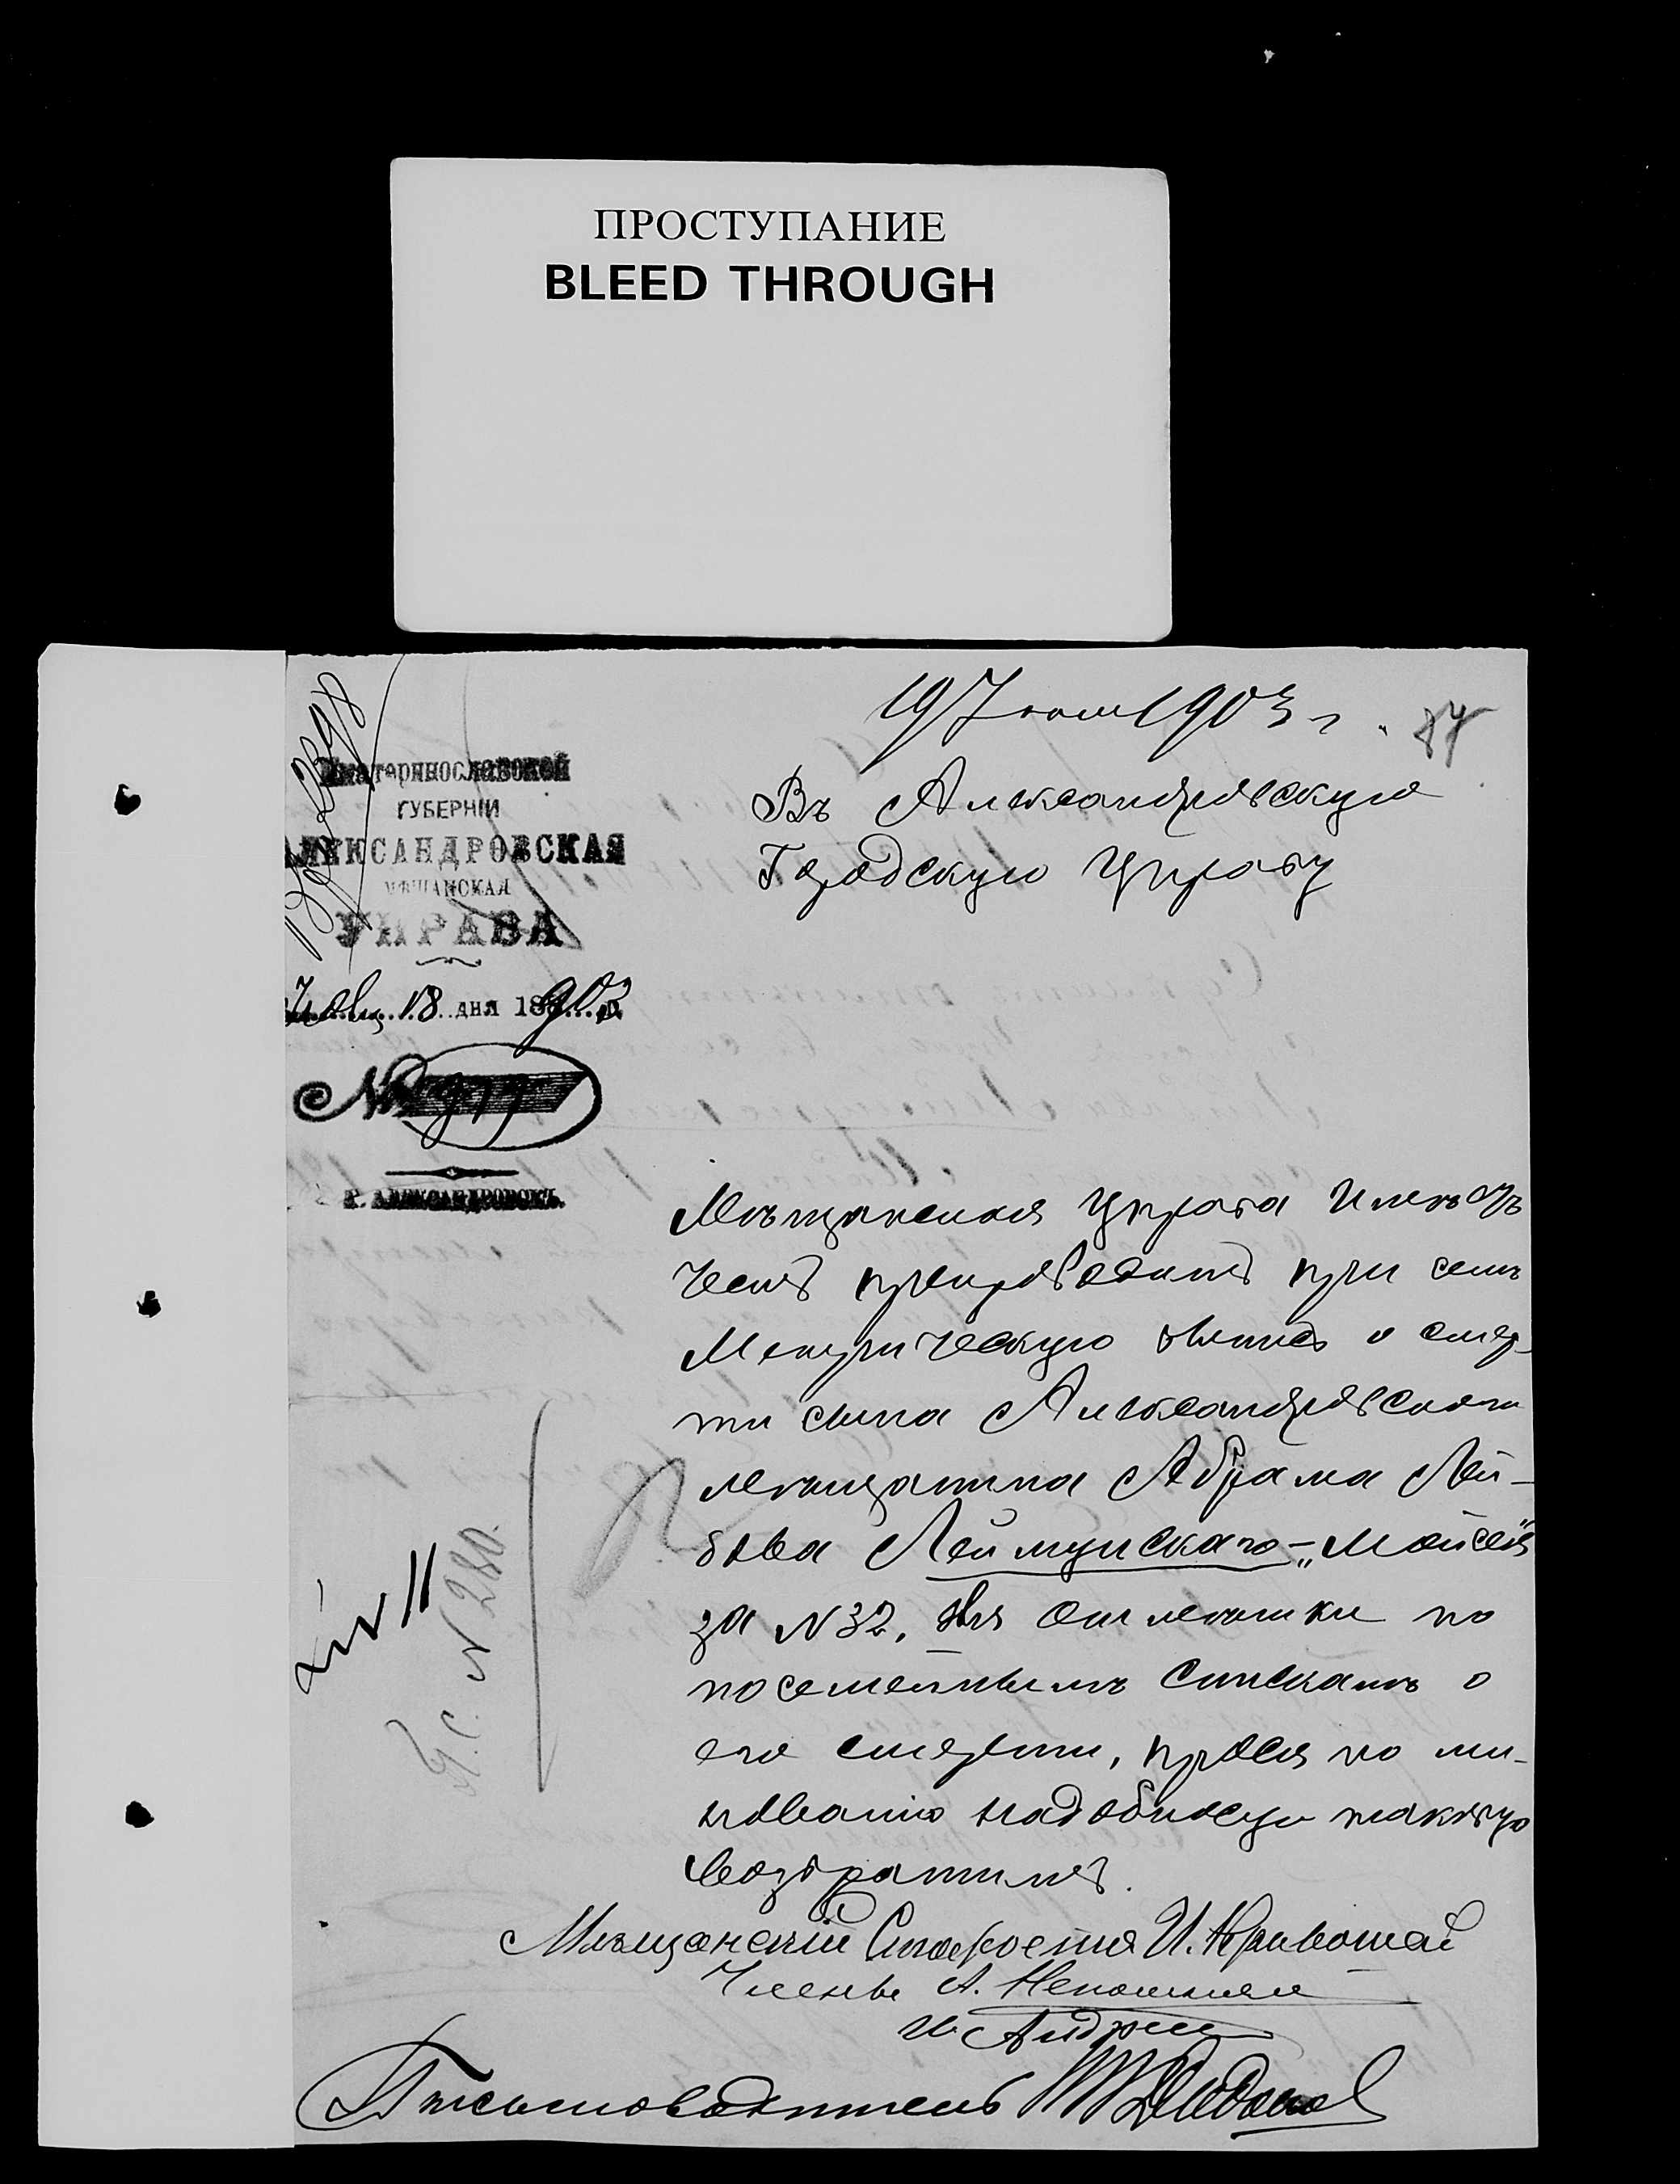 ПРОСТУПАНИЕ
BLEED THROUGH
19 Іюня 1903 г. 87
Екатеринославской
ГУБЕРНІИ
АЛЕКСАНДРОВСКАЯ
МѢЩАНСКАЯ
УПРАВА
18 дня 1903 г.
№ 977
Г. АЛЕКСАНДРОВСКЪ.
Въ Александровскую
Городскую Управу
Мѣщанская Управа имѣетъ
честь препроводить при семъ
Метрическую выпись о смер-
ти сына Александровскаго
мѣщанина Абрама Лей-
бова Леймунскаго - „Мойсея"
за N 32, для отмѣтки по
посемейнымъ спискамъ о
его смерти, прося по ми-
нованіи надобности таковую
возвратить.
Мѣщанскій Староста И. Кривошей
Члены А.
И.
Письмоводитель
N 11
П. С. N 280.